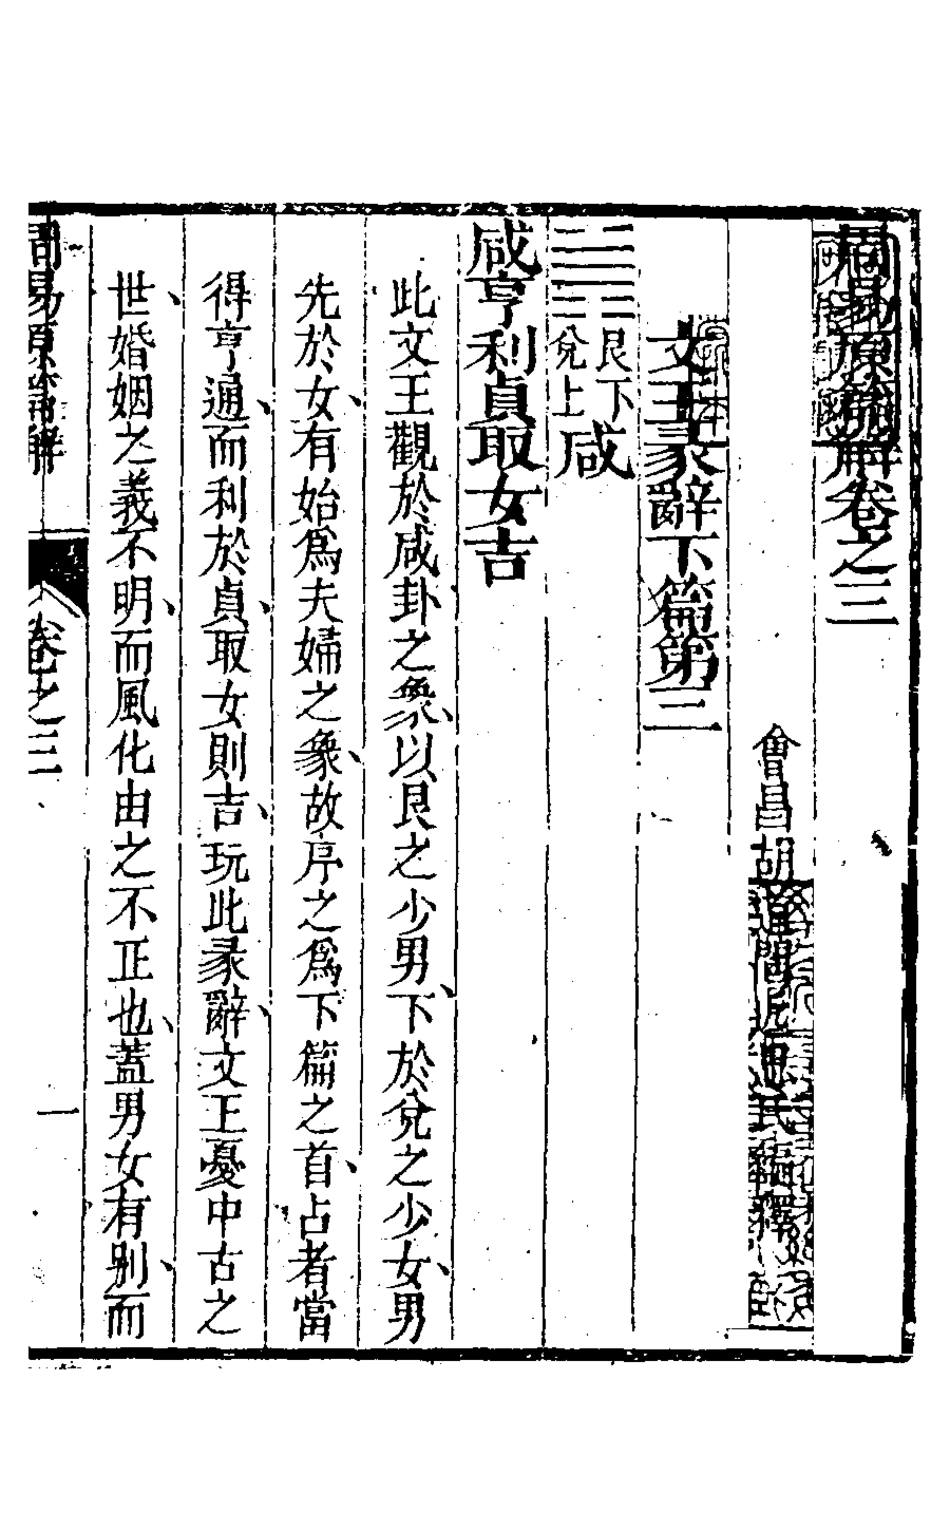 周易原篇解卷之三
會昌胡
編釋
文王彖辭下篇第三
艮下兌上咸
咸亨利貞取女吉
此文王觀於咸卦之象以艮之少男下於兌之少女男
先於女有始爲夫婦之象故序之爲下篇之首占者當
得亨通而利於貞取女則吉玩此彖辭文王憂中古之
世婚姻之義不明而風化由之不正也蓋男女有别而
周易原篇解
卷之三
一